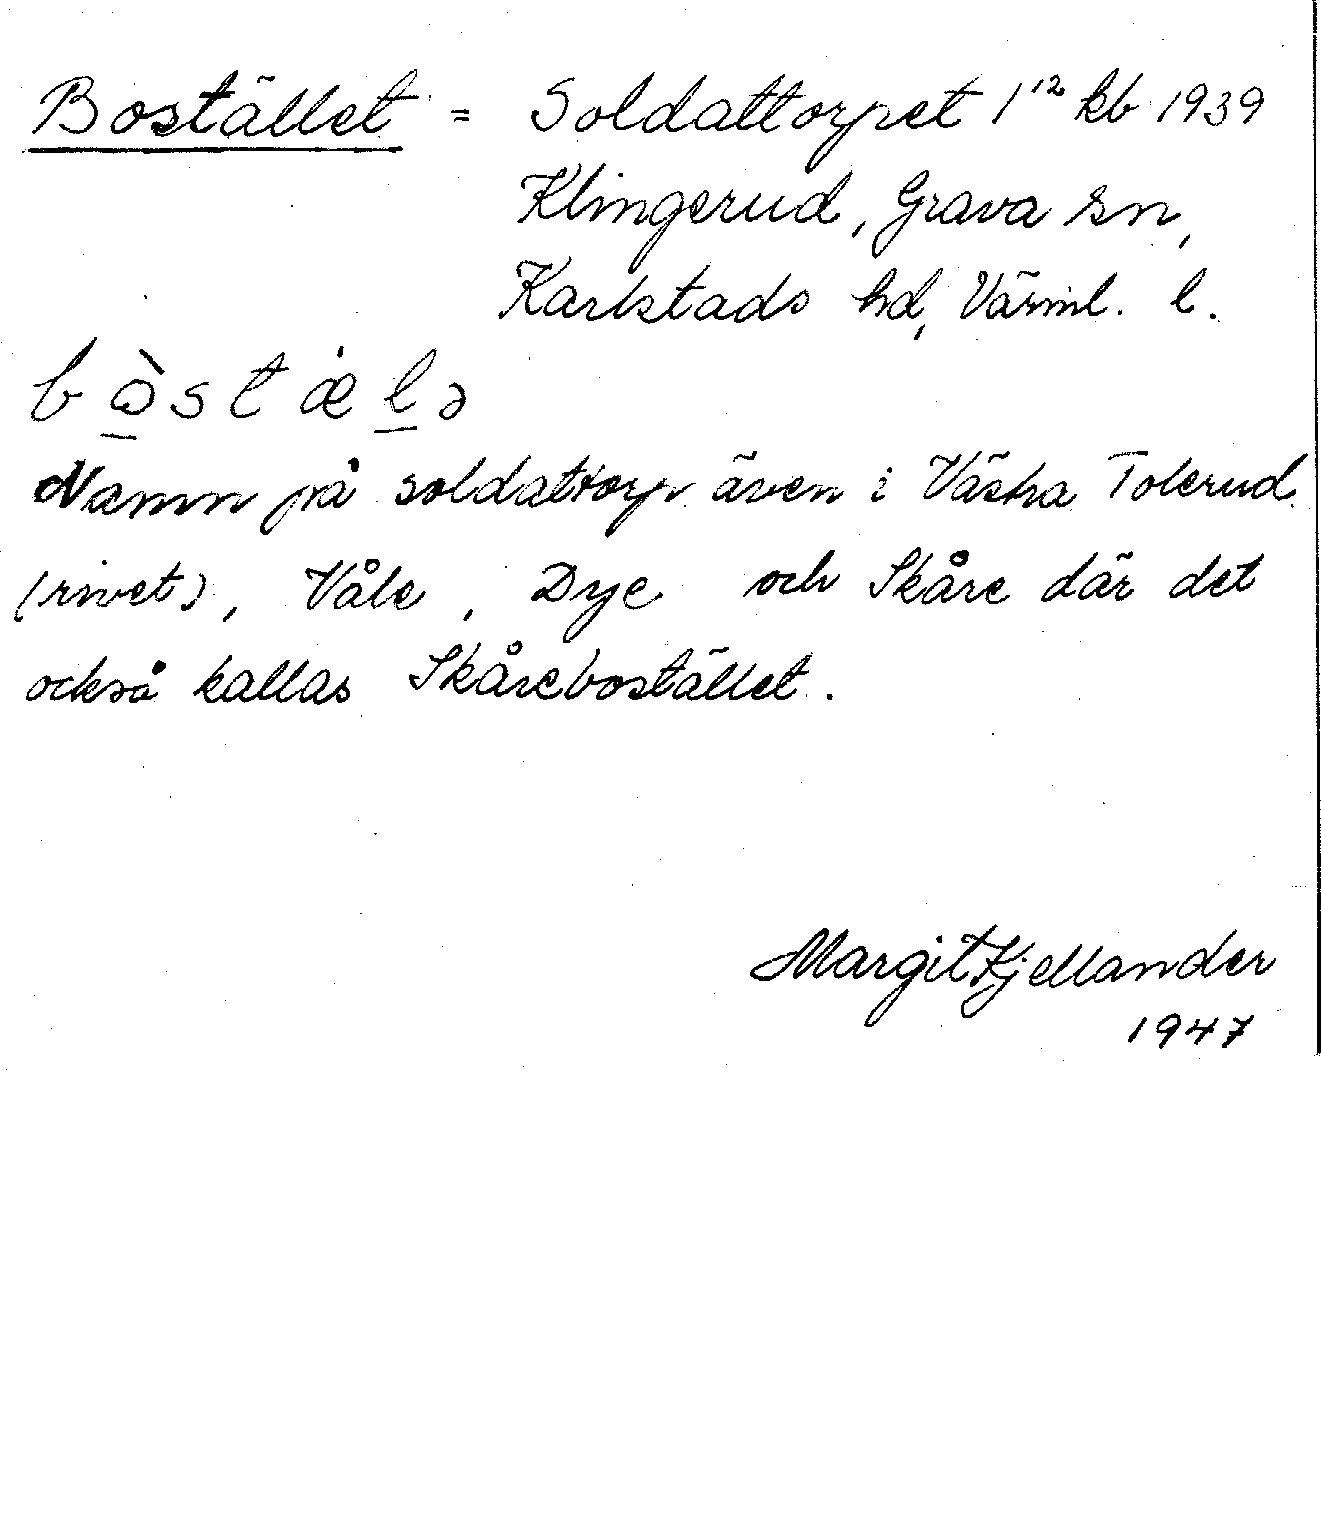 Bostället = Soldattorpet 1¹² kb 1939
Klingerud, Grava sn,
Karlstads hd, Värml. l.
bòstæ̇lə
Namn på soldattorp även i Västra Tolerud
(rivet), Våle, Dye och Skåre där det
också kallas Skårebostället.
Margit Kjellander
1947